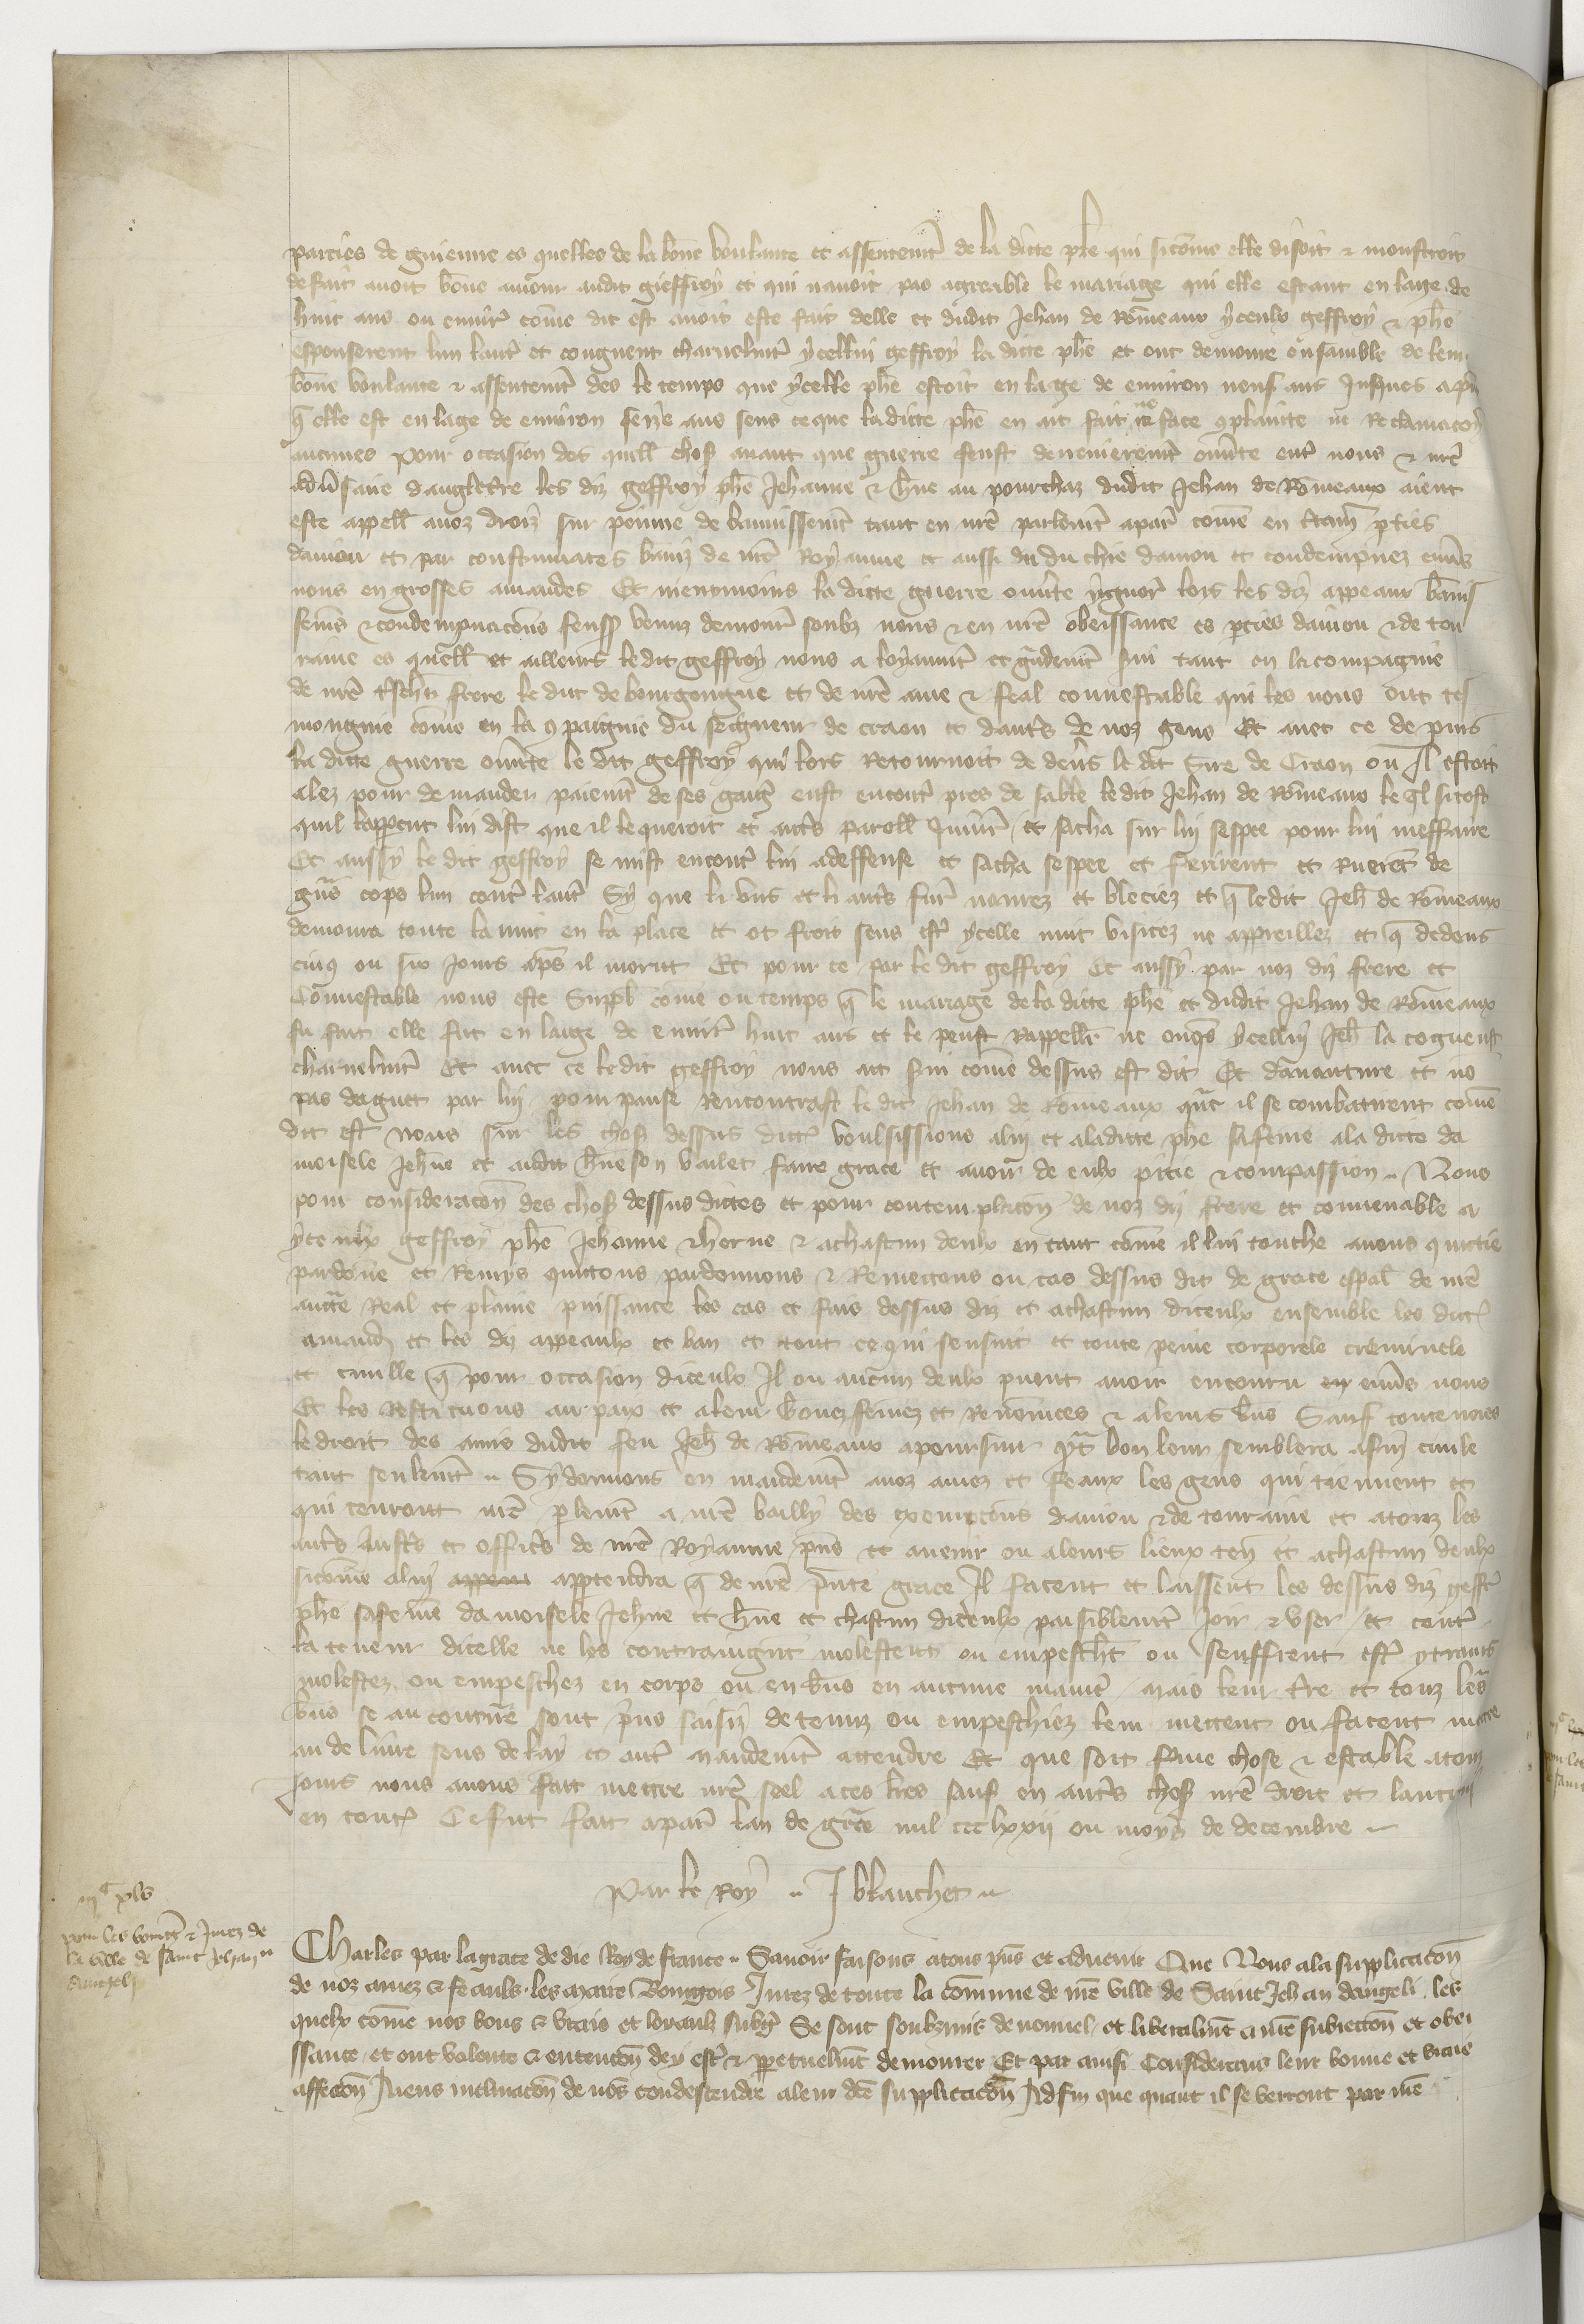 parties de guienne es quelles de la bonē voulante et assentemēt de la dicte phē qui sicōme elle disoit & monstroit
de fait avoit bōne amour audit gieffroy et qui navoit pas agreable le mariage qui elle estant en laige de
huit ans ou envirō cōme dit est avoit este fait delle et dudit Jehan de Rōmeaux yceulx geffroy & phē
espouserent lun lautr̄ et congnent charnelmēt ycellui geffroy la dicte phē et ont demoure ensamble de leur
bōne voulante & assentemēt des le temps que ycelle phē estoit en laage de environ neuf ans Jusques apn̄t
q̄ elle est en laage de environ seize ans sens ce que ladicte phē en ait fait ne face 9plainte ne Reclamacōn
aucunes Pour occasion des quell̄ choſ avant que guerre feust derrenieremēt ouv̄te entr̄ nous & nr̄e
adv̄saire dangleterre les diz geffroy phē Jehanne & h̄ue au pourchaz dudit Jehan de Rōmeaux aient
este appell̄ a noz droiz sur poinne de banissemēt tant en nr̄e parlemēt apar̄ cōme en c̄tain̄ p̄ties
daniou et par coustumaces baniz de nr̄e Royaume et aussi du duchie daniou et condempnez env̄s
nous en grosses amandes Et nientmoins la dicte guerre ouv̄te ygnor̄ lors les diz appeaux banis
semēs & condempnacōns feuss̄ venuz demour̄ soubz nous & en nr̄e obeissance es p̄ties daniou & de tou
raine es quell̄ et ailleurs ledit geffroy nous a loyaumēt et g̃ndemēt s̄vi tant en la compagnie
de nr̄e t̄sch̄r frere le duc de bourgongne et de nr̄e ame & feal connestable qui les nous ont tes
mongnie cōme en la 9paignie du seigneur de craon et dautr̄s de noz gens Et avec ce de puis
la dicte guerre ouv̄te le dit geffroy qui lors Retournoit de dev̄s le dit Sire de Craon ou Il estoit
alez pour demander paiemēt de ses gaig̃ eust encontr̄ pres de sable ledit Jehan de Rōmeaux leq̄l sitost
quil lappcut lui dist que il le queroit et autr̄s paroll̄ Iniur̄ et sacha sur lui sespee pour lui meffaire
Et aussy le dit geffroy se mist encontr̄ lui adeffense et sacha sespee et ferirent et Ruerēt de
g̃ns cops lun contr̄ lautr̄ Sy que li uns et li autr̄s fur̄ navrez et bleciez et q̄ ledit Jeh̄ de Rōmeaux
demoura toute la nuit en la place et ot froit sens estr̄ ycelle nuit visitez ne appreillez et q̄ dedens
cinq ou six Jours ap̄s il morut Et pour ce par le dit geffroy Et aussy par noz diz frere et
Connestable nous este Suppl̄ cōme ou temps q̄ le mariage de la dicte phē et dudit Jehan de Rōmeaux
fu fait elle fut en laige de envirō huit ans et le peust Rappeller ne onq̄s ycelluy Jeh̄ la cogneust
charnelmēt Et avec ce ledit geffroy nous ait s̄vi cōme dessus est dit Et davanture et nō
pas daguet par luy pour panse Rencontrast le dit Jehan de Romeaux quāt il se combatirent cōme
dit est nous sur les choſ dessus dict̄ voulsissions a luy et a ladicte phē sa feme a la dicte da
moisele Jehn̄e et audit h̄ue son vallet faire grace et avoir de eulx pitie & compassion .. Nous
pour consideracōn des choſ dessus dictes et pour contemplacōn de noz diz frere et connenable a
yceulx geffroy phē Jehanne & herve & a chascun deulx en tant cōme il lui touche avons quictie
pardonē et Remys quictons pardonnons & Remectons ou cas dessus dit de grace esp̄al de nr̄e
auct̄e Real et plaine puissance les cas et fais dessus diz et a chascun diceulx ensemble les dict̄
amand̄ et les diz appeaulx et ban et tout ce qui sensuit et toute peine corporele creminele
et civille q̄ pour occasion diceulx Il ou aucun deulx puent avoir encouru env̄s nous
Et les Restituons au pais et a leur bonez femez et Renōmees & a leurs b̄ns Sauf toutevoies
le droit des amis dudit feu Jeh̄ de Rōmeaux a poursuir quāt bon leur semblera a fin civile
tant seulemēt .. Sy donnons en mandemēt a noz amez et Feaux les gens qui tiennent et
qui tenront nr̄e p̄lemēt a nr̄e bailly des exempcōns daniou & de touraine et a touz les
autr̄s Just̄s et offic̄s de nr̄e Royaume p̄ns et avenir ou a leurs lieux ten̄ et a chascun deulx
sicōme a luy app̄tendra q̄ de nr̄e p̄nte grace Il facent et laissent les dessus diz geffr̄
phē sa feme damoisele Jehn̄e et h̄ue et chascun diceulx paisiblemēt Joir & user et contr̄
la teneur dicelle ne les contraingnt molestent ou empeschēt ou seuffrent estr̄ 9trains
molestez ou empeschez en corps ou en b̄ns en aucune manier̄ Mais leur t̄re et touz leurs
b̄ns se au contraire sont p̄ns saisiz detenuz ou empeschiez leur mectent ou facent mectre
au delivre sens delay et autr̄ mandemēt attendre Et que soit ferme chose & estable a touz
Jours nous avons fait mectre nr̄e seel a ces l̄res sauf en autr̄s choſ nr̄e droit et lautruy
en tout̄ Ce fut fait apar̄ lan de grace mil ccclxxii ou moys de decembre
Par le Roy .. J blanchet ..
iijᶜ xlv
pour les bourg̃ & Jurez de
la ville de saint Jehan
dangeli
Charles par la grace de die Roy de france .. Savoir faisons a tous p̄ns et advenir Que Nous a la supplicacōn
de noz amez & feaulx les Maire Bourgois Jurez de toute la cōmune de nr̄e ville de Saint Jehan dangeli les
quelx cōme nos bons & vrais et loyaulx subg̃ Se sont soubzmis de nouvel et liberalmēt a nr̄e subieccōn et obei
ssance et ont volente & entencōn dey estr̄ & p̄petuelmēt demourer Et par ainsi Considerans leur bonne et vraie
affeccōn Avens inclinacōn de nōs condescendre a leur dc̄e supplicacōn Adfin que quant il se verront par nr̄e